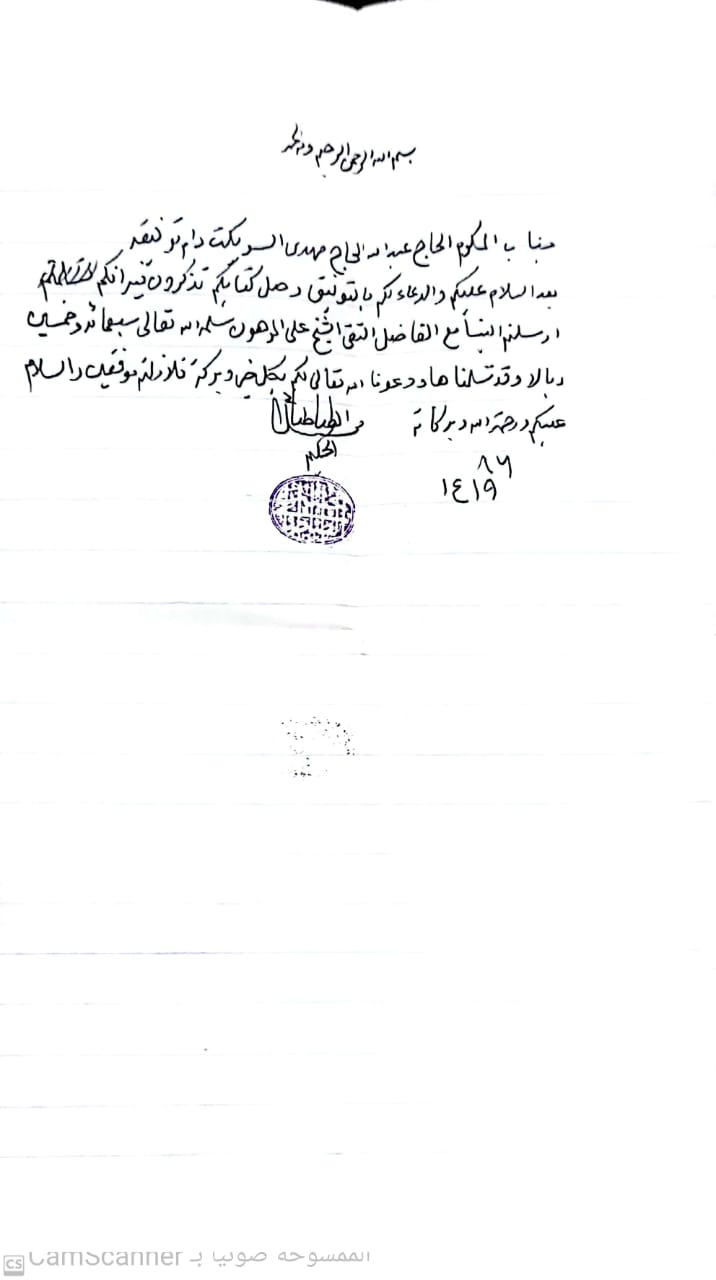 بسم الله الرحمن الرحيم وله الحمد
جناب المكرم الحاج عبد الله الحاج مهدي السويكت دام توفيقه
بعد السلام عليكم والدعاء لكم بالتوفيق وصل كتابكم تذكرون فيه انكم
ارسلتم الينا مع الفاضل التقي الشيخ علي المرهون سلمه الله تعالى سبعمائة وخمسين
ريالا وقد تسلمناها ودعونا الله تعالى لكم بكل خير وبركة فلا زلتم موفقين والسلام
عليكم ورحمة الله وبركاته
الطباطبائي
الحكيم
١٤١٩
الممسوحة ضوئيا بـ CamScanner
CS